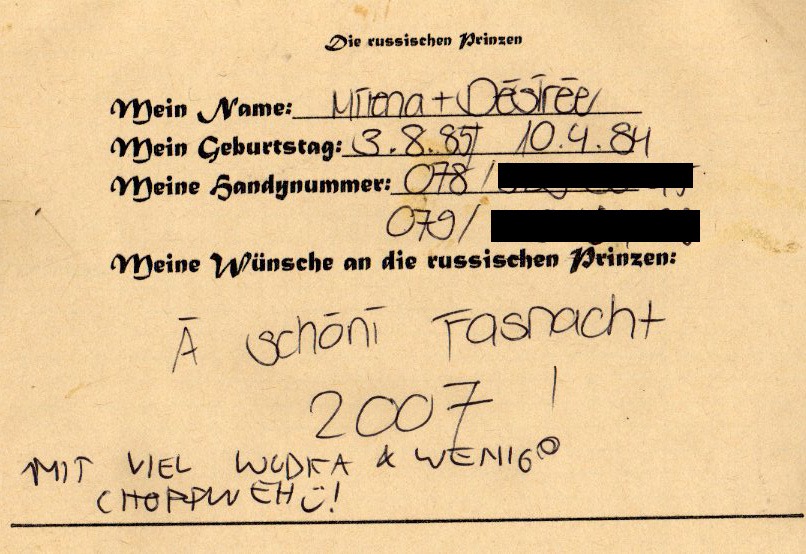 Die russischen Prinzen
Mein Name: Milena + Désirée
Mein Geburtstag: 3.8.85 / 10.4.84
Meine Handynummer: 078/
079/
Meine Wünsche an die russischen Prinzen:
Ä schöni Fasnacht
2007 !
MIT VIEL WODKA & WENIG
CHOPPWEH Ü!